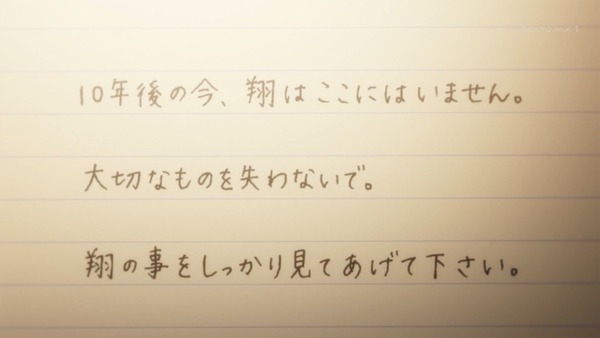 10年後の今、翔はここにはいません。
大切なものを失わないで。
翔の事をしっかり見てあげて下さい。